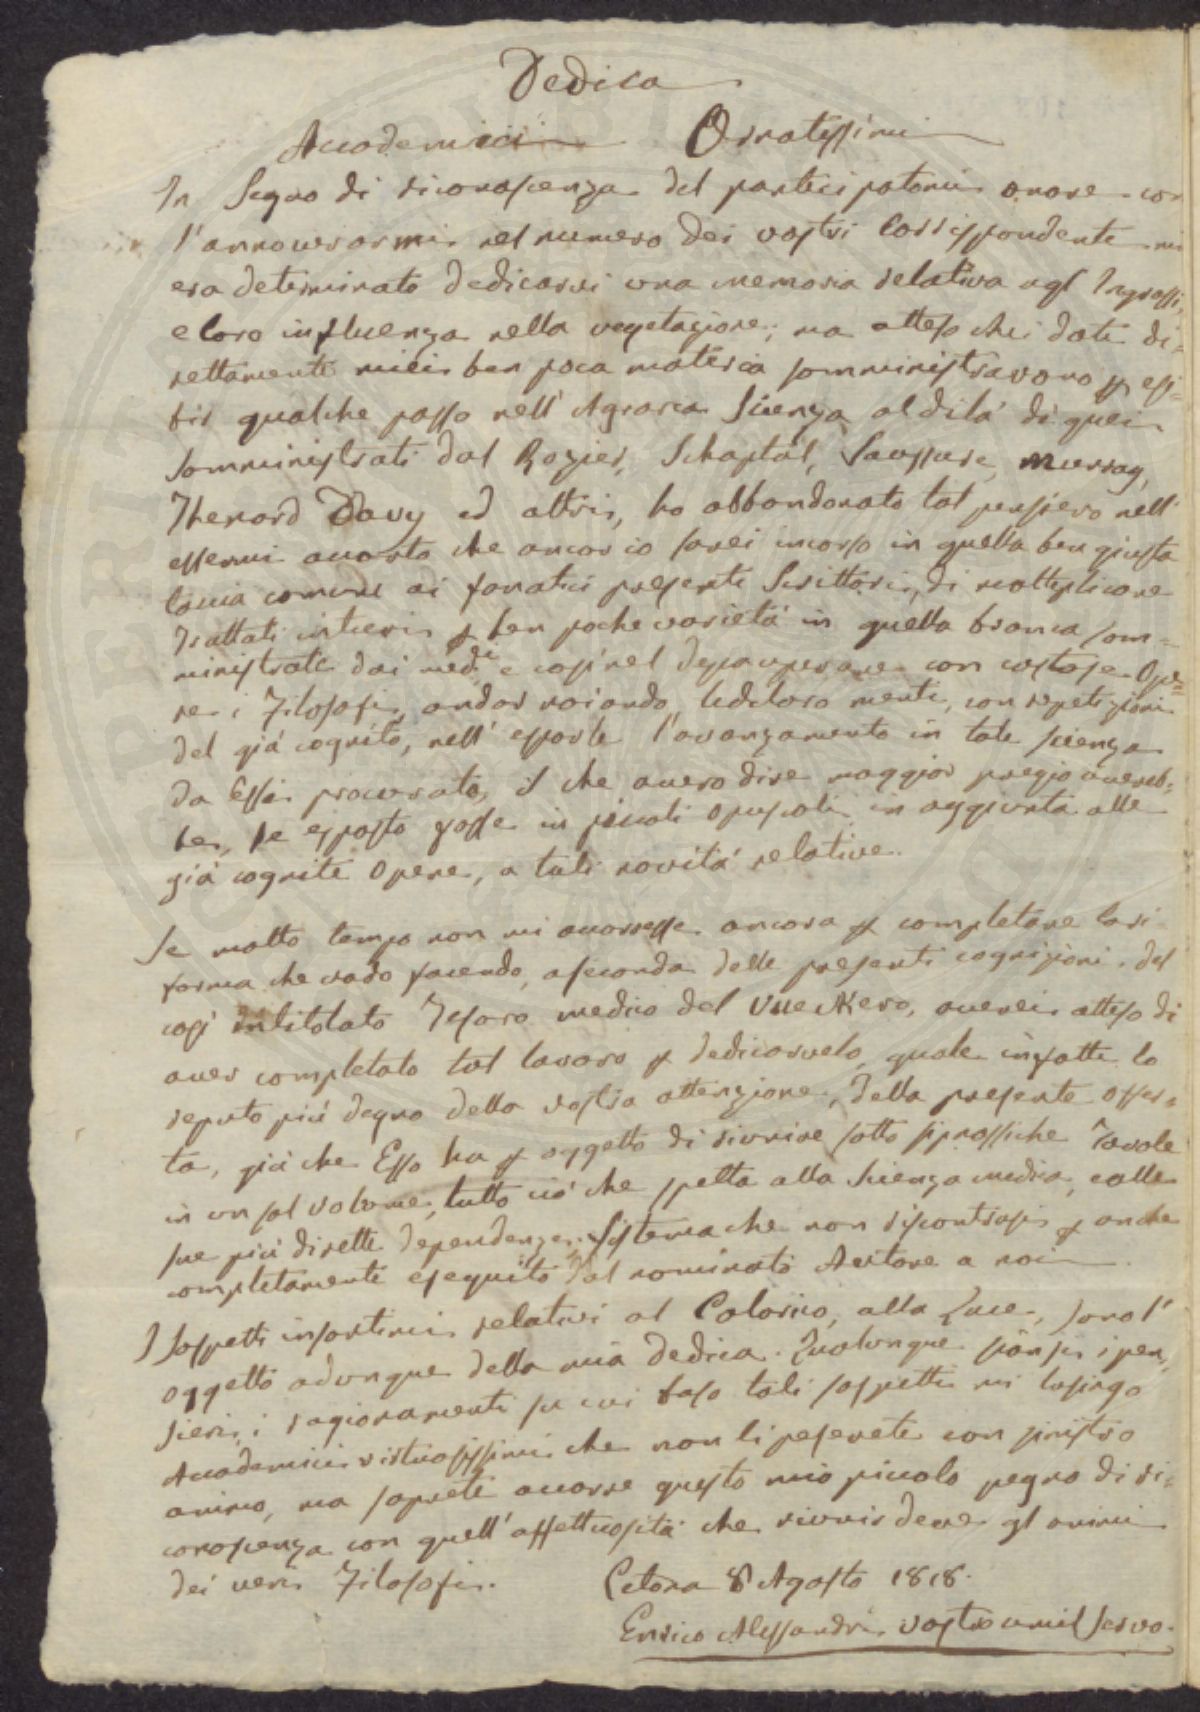 Dedica
Accademici Ornatissimi
In Segno di riconoscenza del partecipatomi onore con
l'annoverarmi nel numero dei vostri Corrispondenti mi
era determinato dedicarvi una memoria relativa agl Ingrassi,
e loro influenza nella vegetazione; ma atteso che i dati di=
rettamente miei ben poca materia somministravono p esi=
bir qualche passo nell' Agraria Scienza al di là di quei
somministrati dal Rozier, Schaptal, Saussure, Murray,
Thenard Davy ed altri, ho abbandonato tal pensiero nell'
essermi accorto che ancor io sarei incorso in quella ben giusta
taccia comune ai fanatici presenti Scrittori, di molteplicare
Trattati intieri p ben poche varietà in quella branca som=
ministrate dai medi e così nel depauperare con costose Ope=
re i Filosofi, andar noiando le loro menti, con repetizioni
del già cognito, nell' esporle l'avanzamento in tale scienza
da Essi procurato, il che a vero dire maggior pregio avereb=
be, se esposto fosse in piccoli Opuscoli in aggiunta alle
già cognite Opere, a tali novità relative.
Se molto tempo non mi accorresse ancora p completare la ri
forma che vado facendo, a seconda delle presenti cognizioni, del
così intitolato Tesoro medico del Vueckero, averei atteso di
aver completato tal lavoro p dedicarvelo, quale infatti lo
reputo più degno della vostra attenzione, della presente offer=
ta, già che Esso ha p oggetto di riunire sotto sinossiche Tavole
in un sol volume, tutto ciò che spetta alla scienza medica, colle
sue più dirette dipendenze; Sistema che non riscontrasi p anche
completamente eseguito dal nominato Autore a noi.
I sospetti insortimi relativi al Calorico, alla Luce, sono l'
oggetto adunque della mia dedica. Qualunque sian si i pen=
sieri, i ragionamenti su cui baso tali sospetti mi lusingo
Accademici virtuosissimi che non li peserete con sinistro
animo, ma saprete accorre questo mio piccolo pegno di ri=
conoscenza con quell' affettuosità che riunir deve gl animi
dei veri Filosofi.
Cetona 8 Agosto 1818.
Enrico Alessandri vostro umil servo.